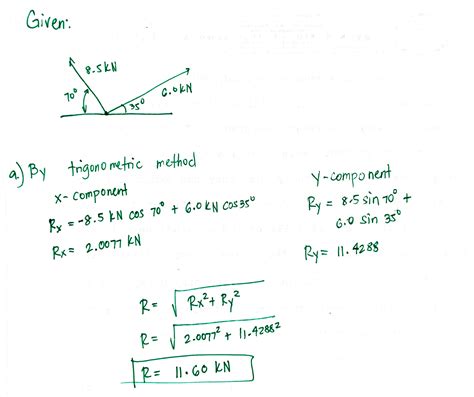 Given:
8.5 KN
70°
35°
6.0 KN
a) By trigonometric method
x-component
Rx = -8.5 KN cos 70° + 6.0 KN cos 35°
Rx = 2.0077 KN
Y-component
Ry = 8.5 sin 70° +
6.0 sin 35°
Ry = 11.4288
R = √Rx² + Ry²
R = √2.0077² + 11.4288²
R = 11.60 KN